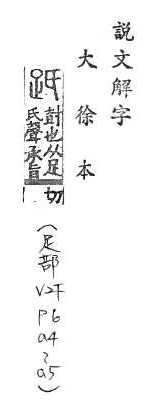 說文解字
大徐本
尌也从足
氏聲承旨
切
（足部
V2下
P6
a4
~
a5）